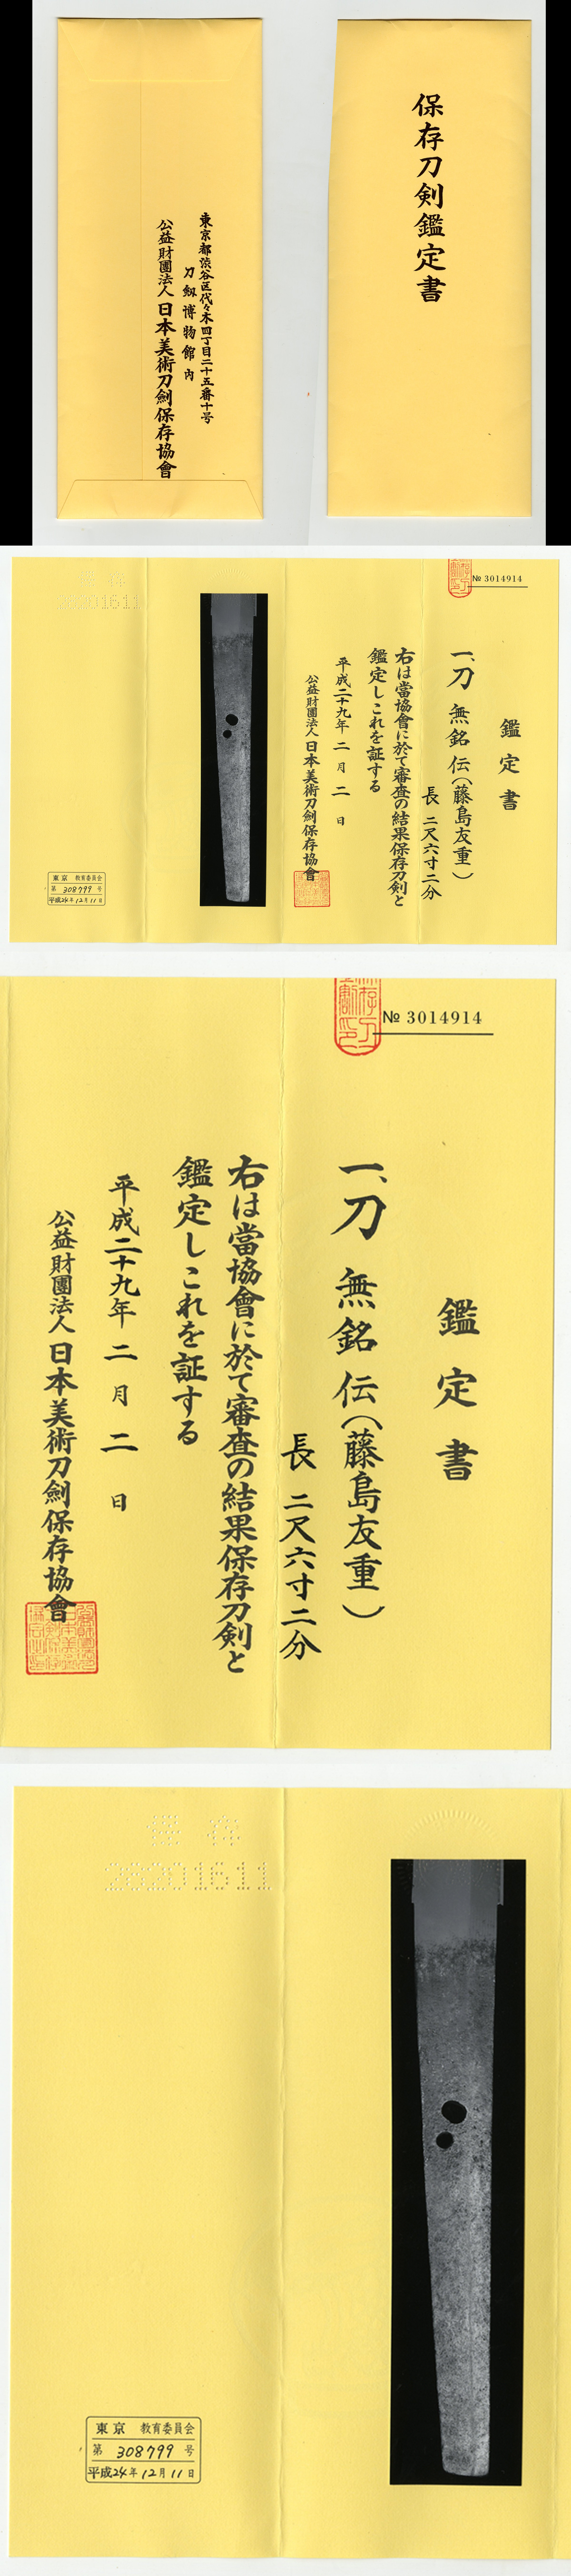 保存刀剣鑑定書
東京都渋谷区代々木四丁目二十五番十号
刀劔博物館内
公益財團法人日本美術刀劍保存協會
№ 3014914
鑑定書
一、刀 無銘 伝(藤島友重)
長 二尺六寸二分
右は當協會に於て審査の結果保存刀剣と
鑑定しこれを証する
平成二十九年 二月 二日
公益財團法人 日本美術刀劍保存協會
保存
26201611
東京 教育委員会
第 308799 号
平成24年12月11日
№ 3014914
鑑定書
一、刀 無銘 伝(藤島友重)
長 二尺六寸二分
右は當協會に於て審査の結果保存刀剣と
鑑定しこれを証する
平成二十九年 二月 二日
公益財團法人 日本美術刀劍保存協會
保存
26201611
東京 教育委員会
第 308799 号
平成24年12月11日